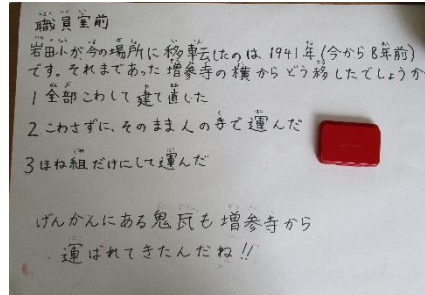 職員室前
岩田小が今の場所に移転したのは、1941年(今から8年前)
です。それまであった増参寺の横からどう移したでしょうか
1 全部こわして建て直した
2 こわさずに、そのまま人の手で運んだ
3 ほね組だけにして運んだ
げんかんにある鬼瓦も増参寺から
運ばれてきたんだね!!